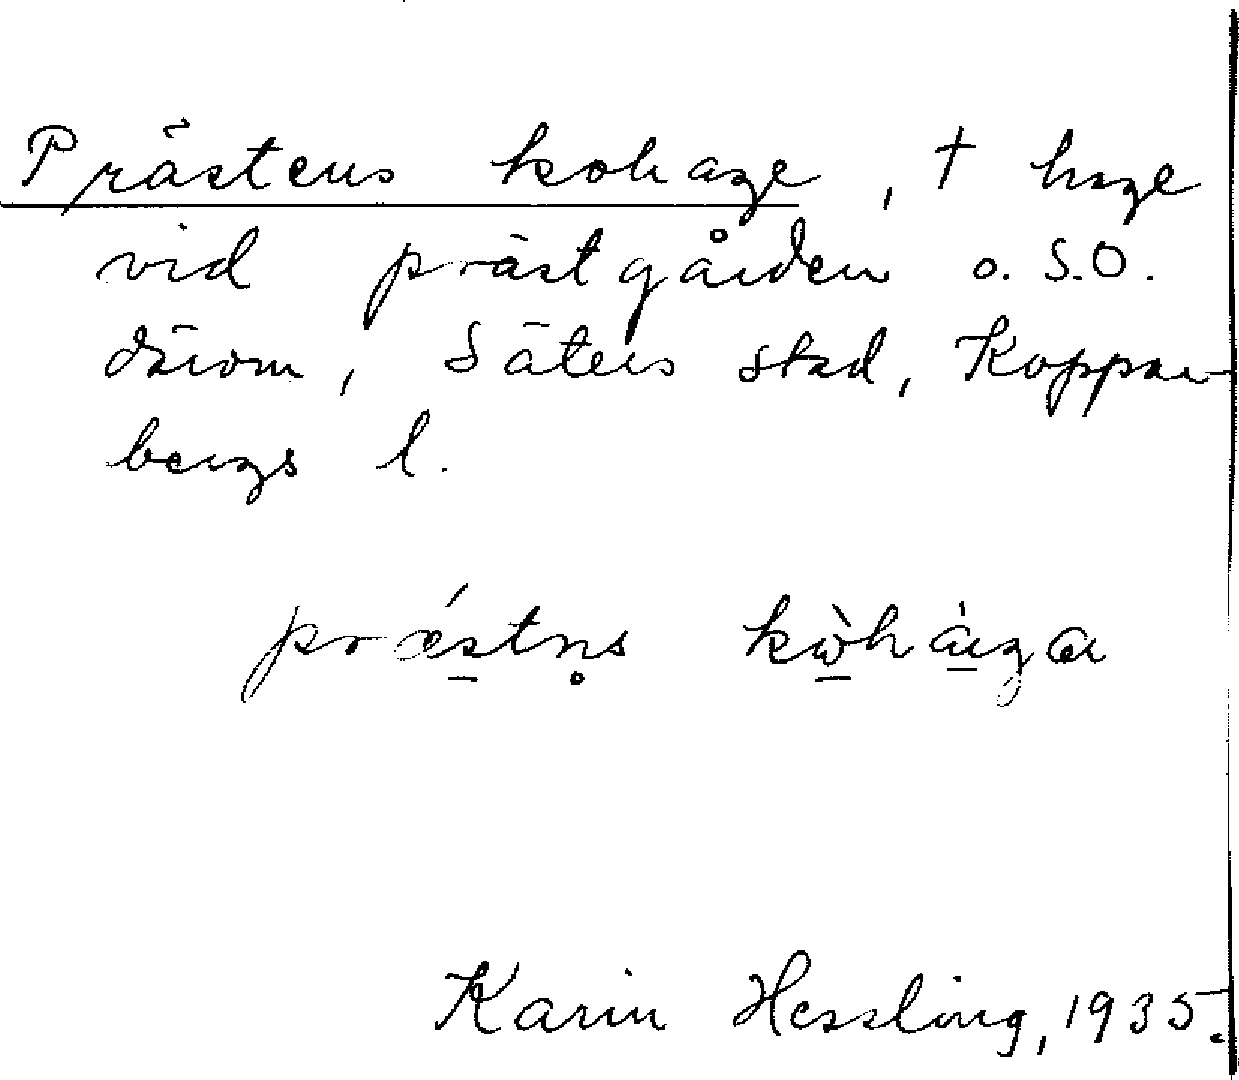 Prästens kohage, † hage
vid prästgården o. S.O.
därom, Säters stad, Koppar-
bergs l.
prǽstn̥s kòhàga
Karin Hessling, 1935.